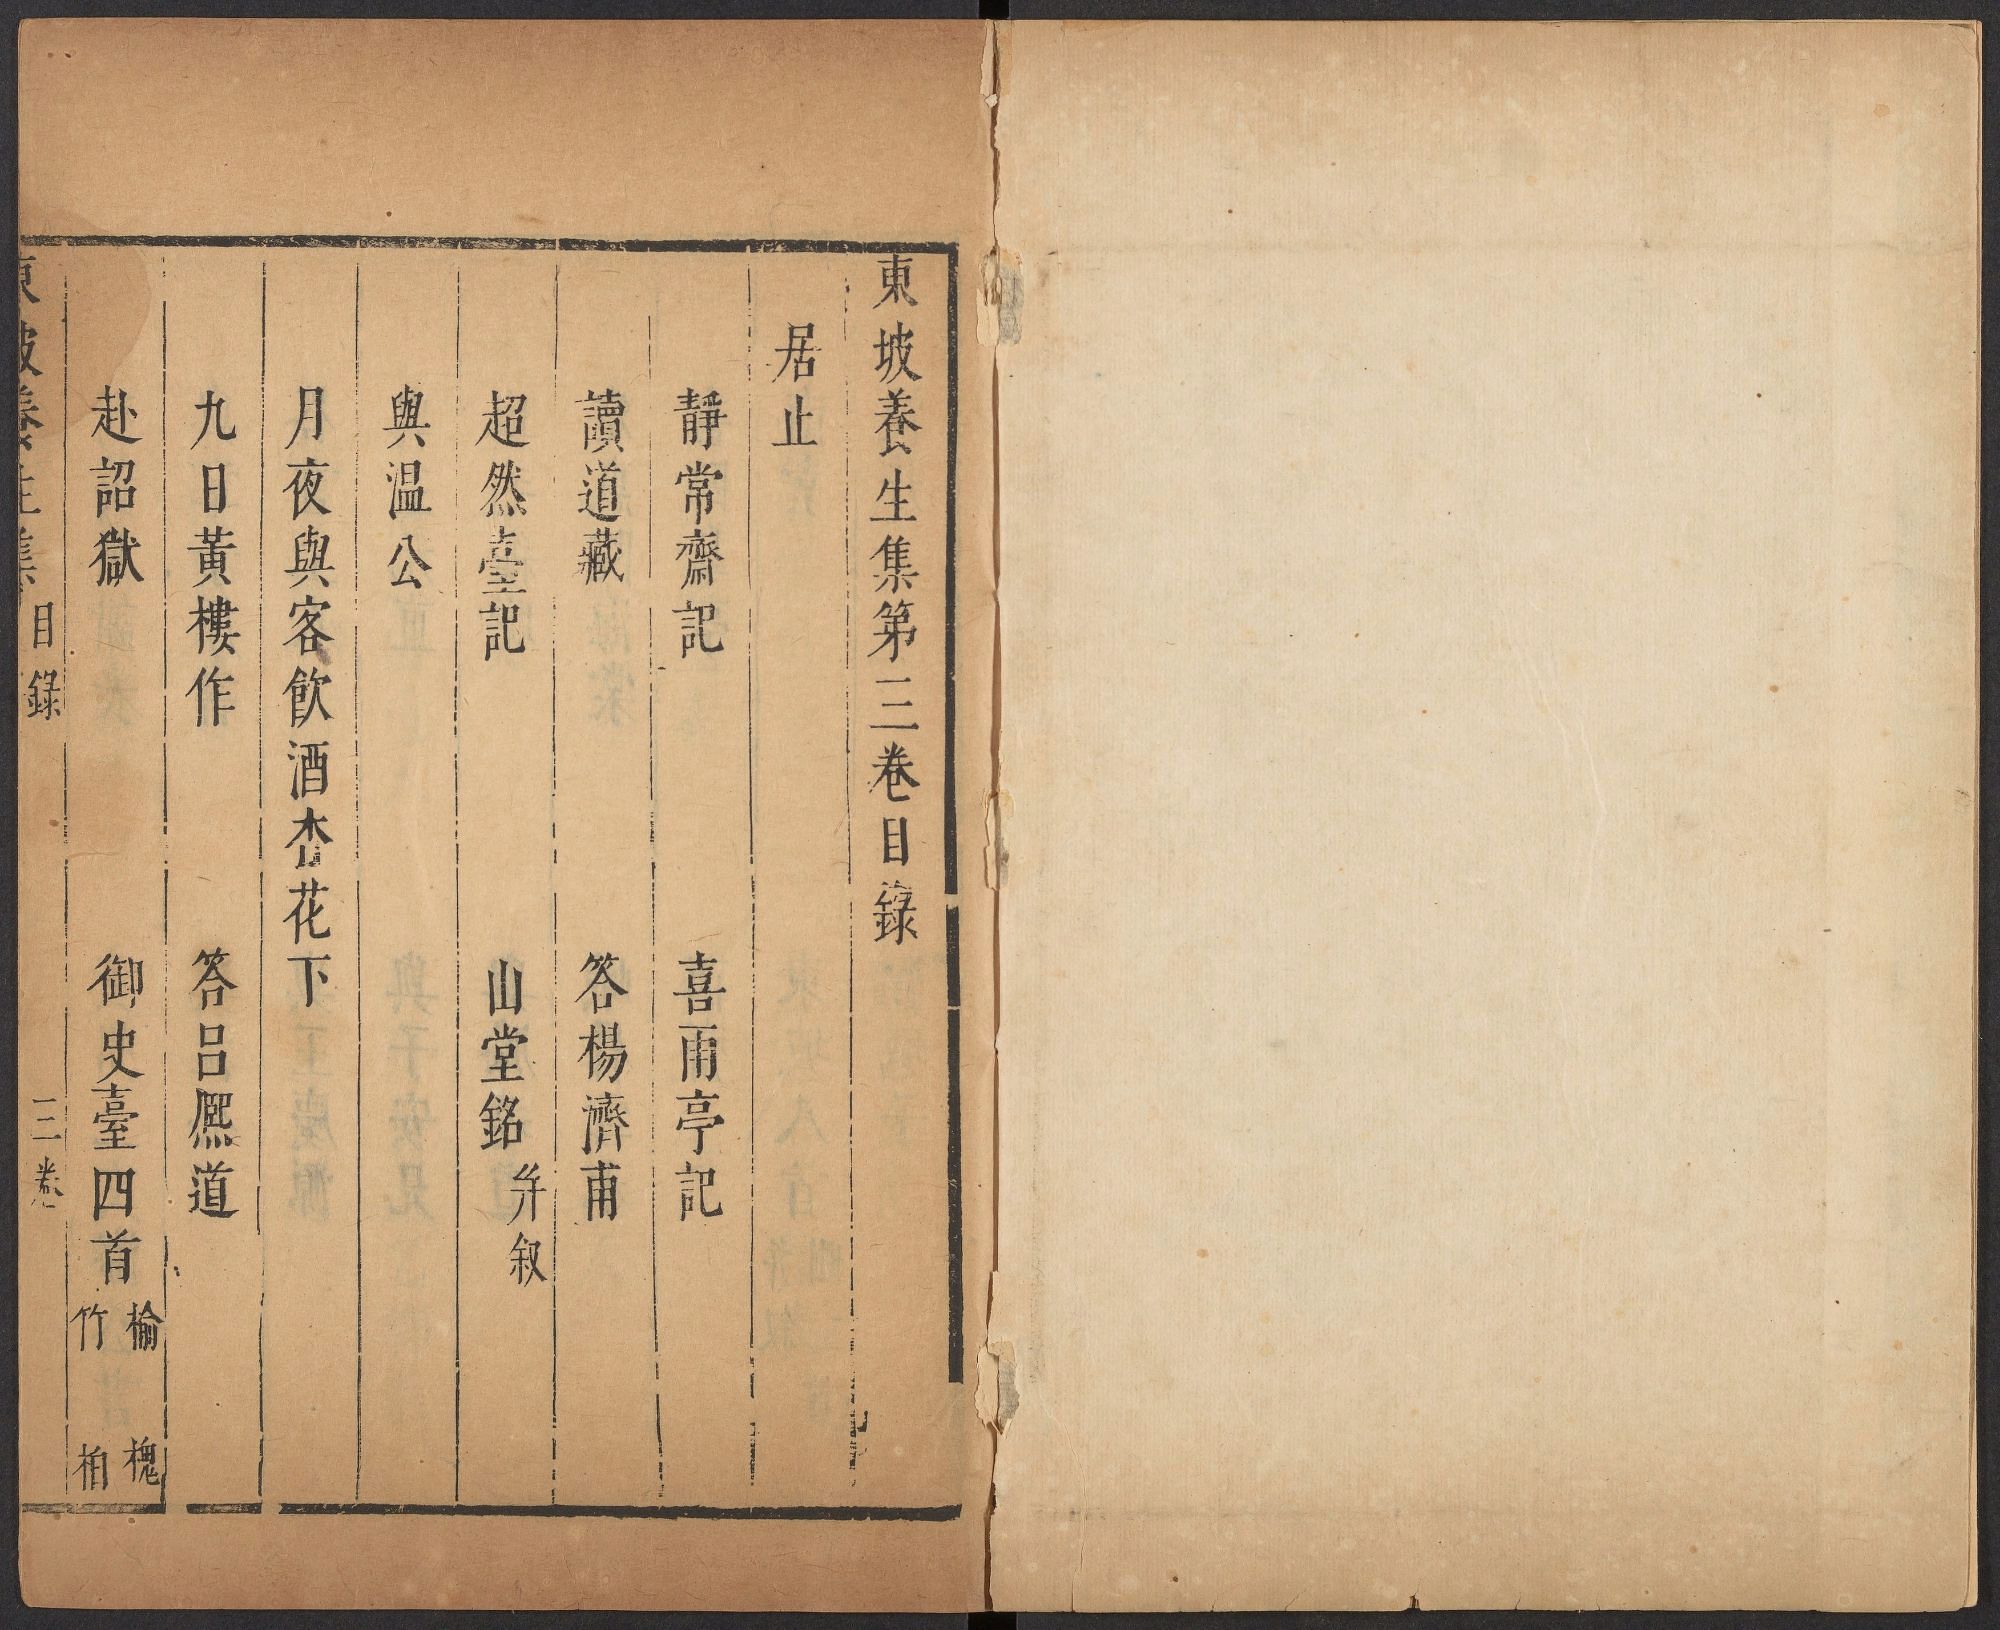 東坡養生集第三卷目錄
居止
靜常齋記　喜雨亭記
讀道藏　答楊濟甫
超然臺記　山堂銘并叙
與温公
月夜與客飲酒杏花下
九日黃樓作　答呂熈道
赴詔獄　御史臺四首榆槐竹柏
東坡養生集　目錄　三卷